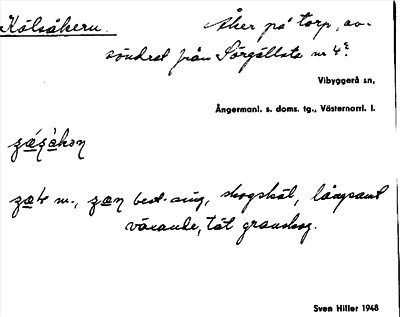 Kölsåkern. Åker på torp, av-
söndrat från Sörgällsta nr 4
Vibyggerå sn,
Ångermanl. s. doms. tg., Västernorrl. l.
m., best. sing, skogskäl, långsamt
växande, tät granskog.
Sven Hiller 1948